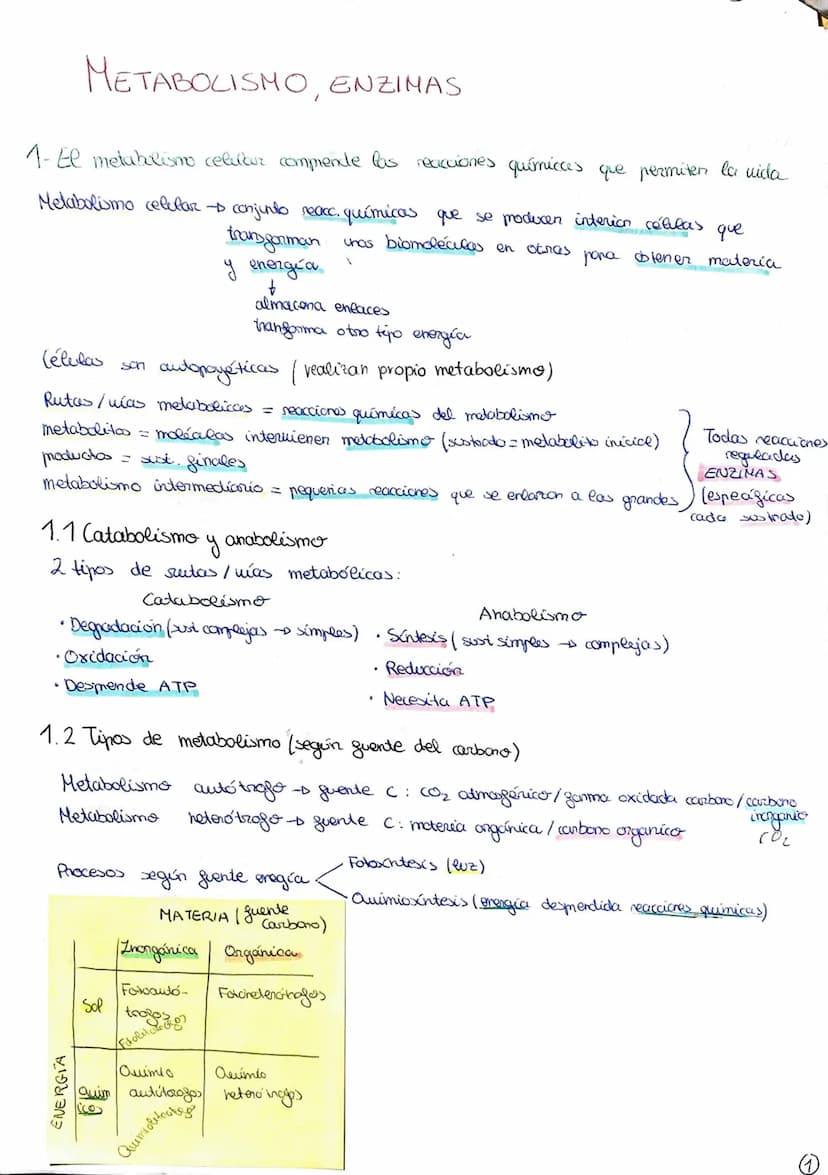 METABOLISMO, ENZIMAS
1- El metabolismo celular comprende las reacciones químicas que permiten la vida
Metabolismo celular → conjunto reacc. químicas que se producen interior células que
transforman unas biomoléculas en otras para obtener materia
y energía
↓
almacena enlaces
transforma otro tipo energía
Células son autopoyéticas (realizan propio metabolismo)
Rutas / vías metabólicas = reacciones químicas del metabolismo
metabolitos = moléculas intervienen metabolismo (sustrato = metabolito inicial)
productos = sust. finales
metabolismo intermediario = pequeñas reacciones que se enlazan a las grandes
Todas reacciones
reguladas
ENZIMAS
(específicas
cada sustrato)
1.1 Catabolismo y anabolismo
2 tipos de rutas / vías metabólicas:
Catabolismo
· Degradación (sust complejas → simples)
· Oxidación
· Desprende ATP
Anabolismo
· Síntesis (sust simples → complejas)
· Reducción
· Necesita ATP
1.2 Tipos de metabolismo (según fuente del carbono)
Metabolismo autótrofo → fuente C: CO2 atmosférico / forma oxidada carbono / carbono
inorgánico
CO2
Metabolismo heterótrofo → fuente C: materia orgánica / carbono orgánico
Procesos según fuente enegía
Fotosíntesis (luz)
Quimiosíntesis (energía desprendida reacciones químicas)
MATERIA (fuente
Carbono)
Inorgánica Orgánica
ENERGÍA
Sol
Fotoautó-
trofos
Fotolitótrofos
Fotoheterótrofos
Quím
icos
Quimio
autótrofos
Quimiolitótrofos
Quimio
heterótrofos
1